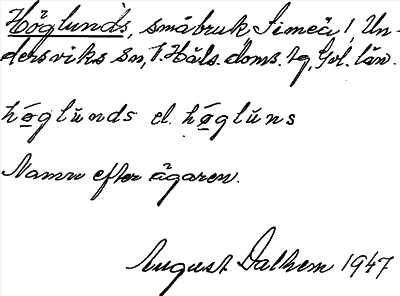 Höglunds, småbruk, Simeå 1, Un-
dersviks sn, V. Häls. doms. tg, Gvl. län.
høglŭnds el. høglŭns
Namn efter ägaren.
August Dalhem 1947